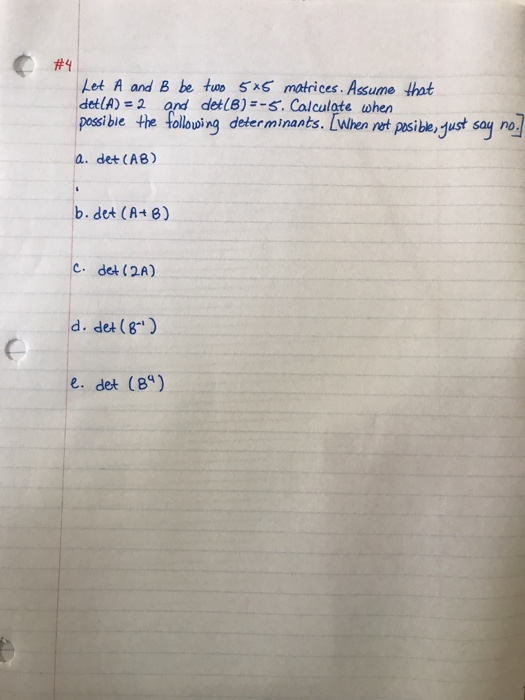 #4
Let A and B be two 5x5 matrices. Assume that
det(A) = 2 and det(B) = -5. Calculate when
possible the following determinants. [When not posible, just say no.]
a. det (AB)
b. det (A+B)
c. det (2A)
d. det (B⁻¹)
e. det (B⁴)